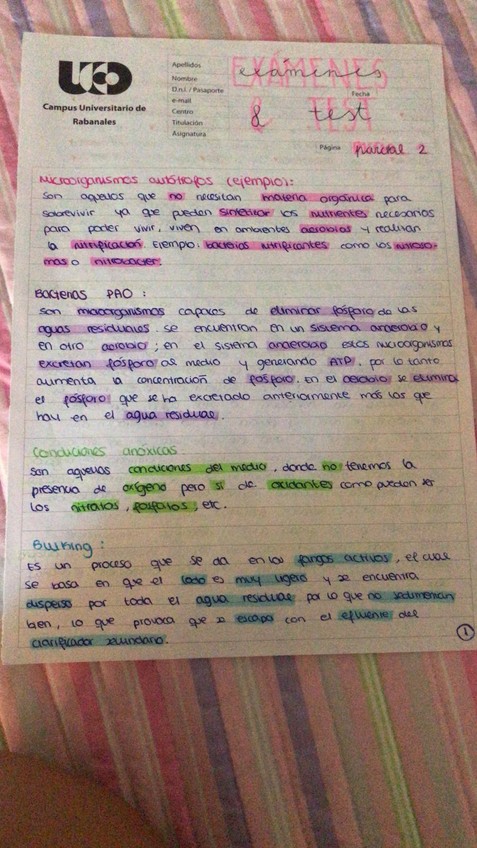 UCO
Campus Universitario de
Rabanales
Apellidos
Nombre
D.n.i. / Pasaporte
e-mail
Centro
Titulación
Asignatura
Fecha
Página
EXÁMENES
exámenes
& TEST
test
parcial 2
Microorganismos autótrofos (ejemplo):
son aquellos que no necesitan materia orgánica para
sobrevivir ya que pueden sintetizar los nutrientes necesarios
para poder vivir, viven en ambientes aerobios y realizan
la nitrificación. Ejemplo: bacterias nitrificantes como los nitroso-
mas o nitrobacter.
Bacterias PAO :
son microorganismos capaces de eliminar fósforo de las
aguas residuales. se encuentran en un sistema anaerobio y
en otro aerobio ; en el sistema anaerobio estos microorganismos
excretan fósforo al medio y generando ATP, por lo tanto
aumenta la concentración de fósforo. En el aerobio se elimina
el fósforo que se ha excretado anteriormente más los que
hay en el agua residual.
Condiciones anóxicas
Son aquellas condiciones del medio, donde no tenemos la
presencia de oxígeno pero si de oxidantes como pueden ser
los nitratos, fosfatos, etc.
Bulking :
Es un proceso que se da en los fangos activos, el cual
se basa en que el lodo es muy ligero y se encuentra
disperso por toda el agua residual por lo que no sedimentan
bien, lo que provoca que se escapa con el efluente del
clarificador secundario.
1